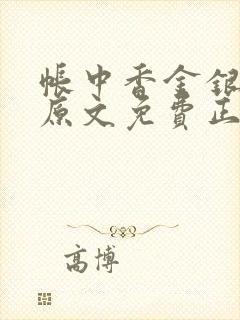 帳中香金銀
原文免費正
高博